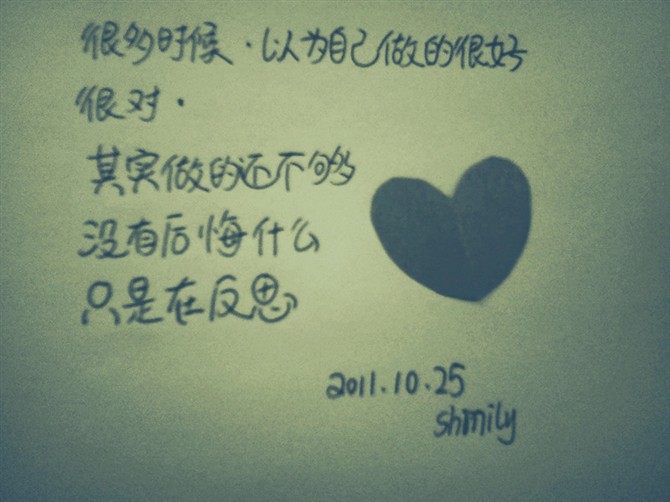 很多时候.以为自己做的很好
很对.
其实做的还不够
没有后悔什么
只是在反思
2011.10.25
shmily